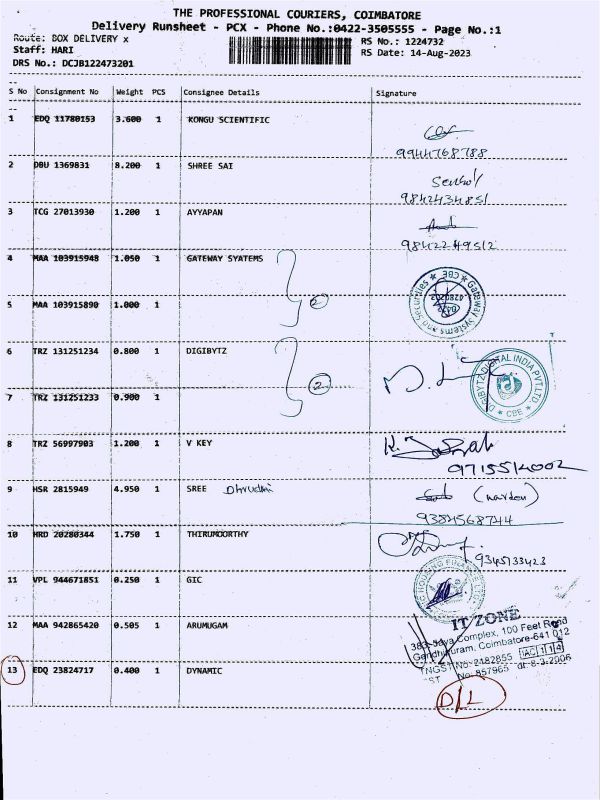 THE PROFESSIONAL COURIERS, COIMBATORE
Delivery Runsheet - PCX - Phone No.:0422-3505555 - Page No.:1
Route: BOX DELIVERY x
RS No.: 1224732
Staff: HARI
RS Date: 14-Aug-2023
DRS No.: DCJB122473201
S No Consignment No Weight PCS Consignee Details Signature
1 EDQ 11780153 3.600 1 KONGU SCIENTIFIC
9944768788
2 DBU 1369831 8.200 1 SHREE SAI
9842434851
3 TCG 27013930 1.200 1 AYYAPAN
9842249512
4 MAA 103915948 1.050 1 GATEWAY SYATEMS
Gateway Systems and Securities CBE
5 MAA 103915890 1.000 1
2
6 TRZ 131251234 0.800 1 DIGIBYTZ
DIGIBYTZ DIGITAL INDIA PVT.LTD. CBE
2
7 TRZ 131251233 0.900 1
8 TRZ 56997903 1.200 1 V KEY
9715514002
9 HSR 2815949 4.950 1 SREE Dhrudhi
(warden)
9384568744
10 HRD 20280344 1.750 1 THIRUMOORTHY
9345133423
11 VPL 944671851 0.250 1 GIC
HOUSING FINANCE LTD
12 MAA 942865420 0.505 1 ARUMUGAM
IT ZONE
Complex, 100 Feet Road
Gandhipuram, Coimbatore-641 012
13 EDQ 23824717 0.400 1 DYNAMIC
TNGST No: 2182855
No: 857965 dt: 8-3-2006
D/L